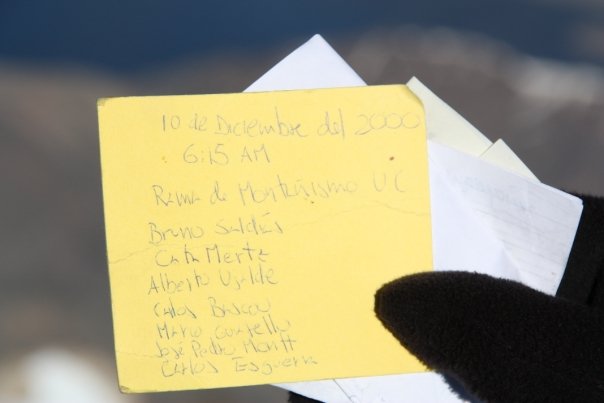 10 de Diciembre del 2000
6:15 AM
Rama de Montañismo UC
Bruno Saldías
Cata Mertz
Alberto Ugalde
Carlos Bascou
Mario
José Pedro Montt
Carlos Esguerra